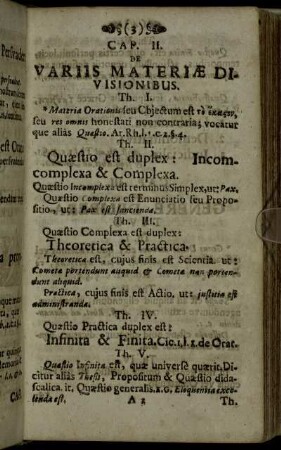 (3)
CAP. II.
DE
VARIIS MATERIÆ DI-
VISIONIBUS.
Th. I.
*Materia Orationis seu Objectum est
seu res omnis honestati non contraria; vocatur
que aliàs Quæstio. Ar. Rh. l. 1. c. 2. §. 4.
Th. II.
Quæstio est duplex: Incom-
complexa & Complexa.
Quæstio Incomplexa est terminus Simplex, ut: Pax.
Quæstio Complexa est Enunciatio seu Propo-
sitio, ut: Pax est sancienda.
Th. III.
Quæstio Complexa est duplex:
Theoretica & Practica.
Theoretica est, cujus finis est Scientia. ut:
Cometæ portendunt aliquid & Cometæ non porten-
dunt aliquid.
Practica, cujus finis est Actio. ut: justitia est
administranda.
Th. IV.
Quæstio Practica duplex est:
Infinita & Finita. Cic. l. 1. & 2. de Orat.
Th. V.
Quæstio Infinita est, quæ universè quærit. Di-
citur aliàs Thesis, Propositum & Quæstio dida-
scalica. it. Quæstio generalis. Eloquentia exco-
lenda est.
A 2 Th.